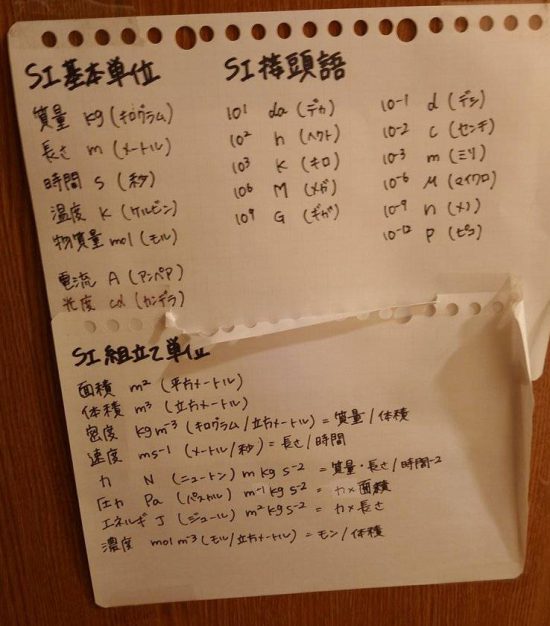 SI基本単位
質量 kg (キログラム)
長さ m (メートル)
時間 s (秒)
温度 K (ケルビン)
物質量 mol (モル)
電流 A (アンペア)
光度 cd (カンデラ)
SI接頭語
10¹ da (デカ)
10² h (ヘクト)
10³ K (キロ)
10⁶ M (メガ)
10⁹ G (ギガ)
10⁻¹ d (デシ)
10⁻² c (センチ)
10⁻³ m (ミリ)
10⁻⁶ μ (マイクロ)
10⁻⁹ n (ナノ)
10⁻¹² p (ピコ)
SI組立て単位
面積 m² (平方メートル)
体積 m³ (立方メートル)
密度 kg m⁻³ (キログラム/立方メートル) = 質量/体積
速度 ms⁻¹ (メートル/秒) = 長さ/時間
力 N (ニュートン) m kg s⁻² = 質量・長さ/時間⁻²
圧力 Pa (パスカル) m⁻¹ kg s⁻² = 力×面積
エネルギ J (ジュール) m² kg s⁻² = 力×長さ
濃度 mol m⁻³ (モル/立方メートル) = モン/体積